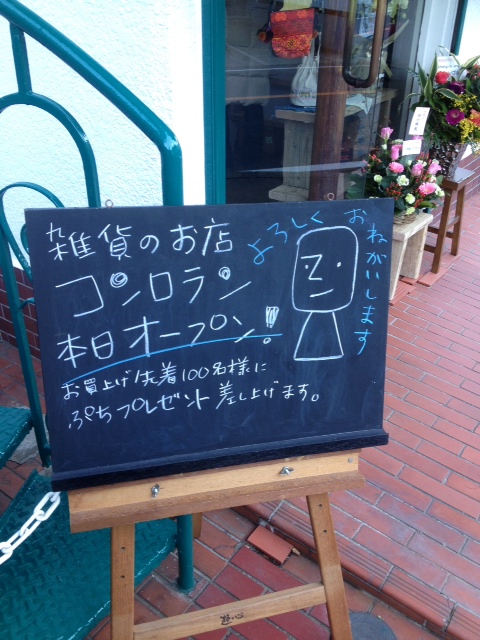 雑貨のお店
コンロラン
本日オープン!
お買上げ先着100名様に
ぷちプレゼント差し上げます。
よろしく
おねがいします